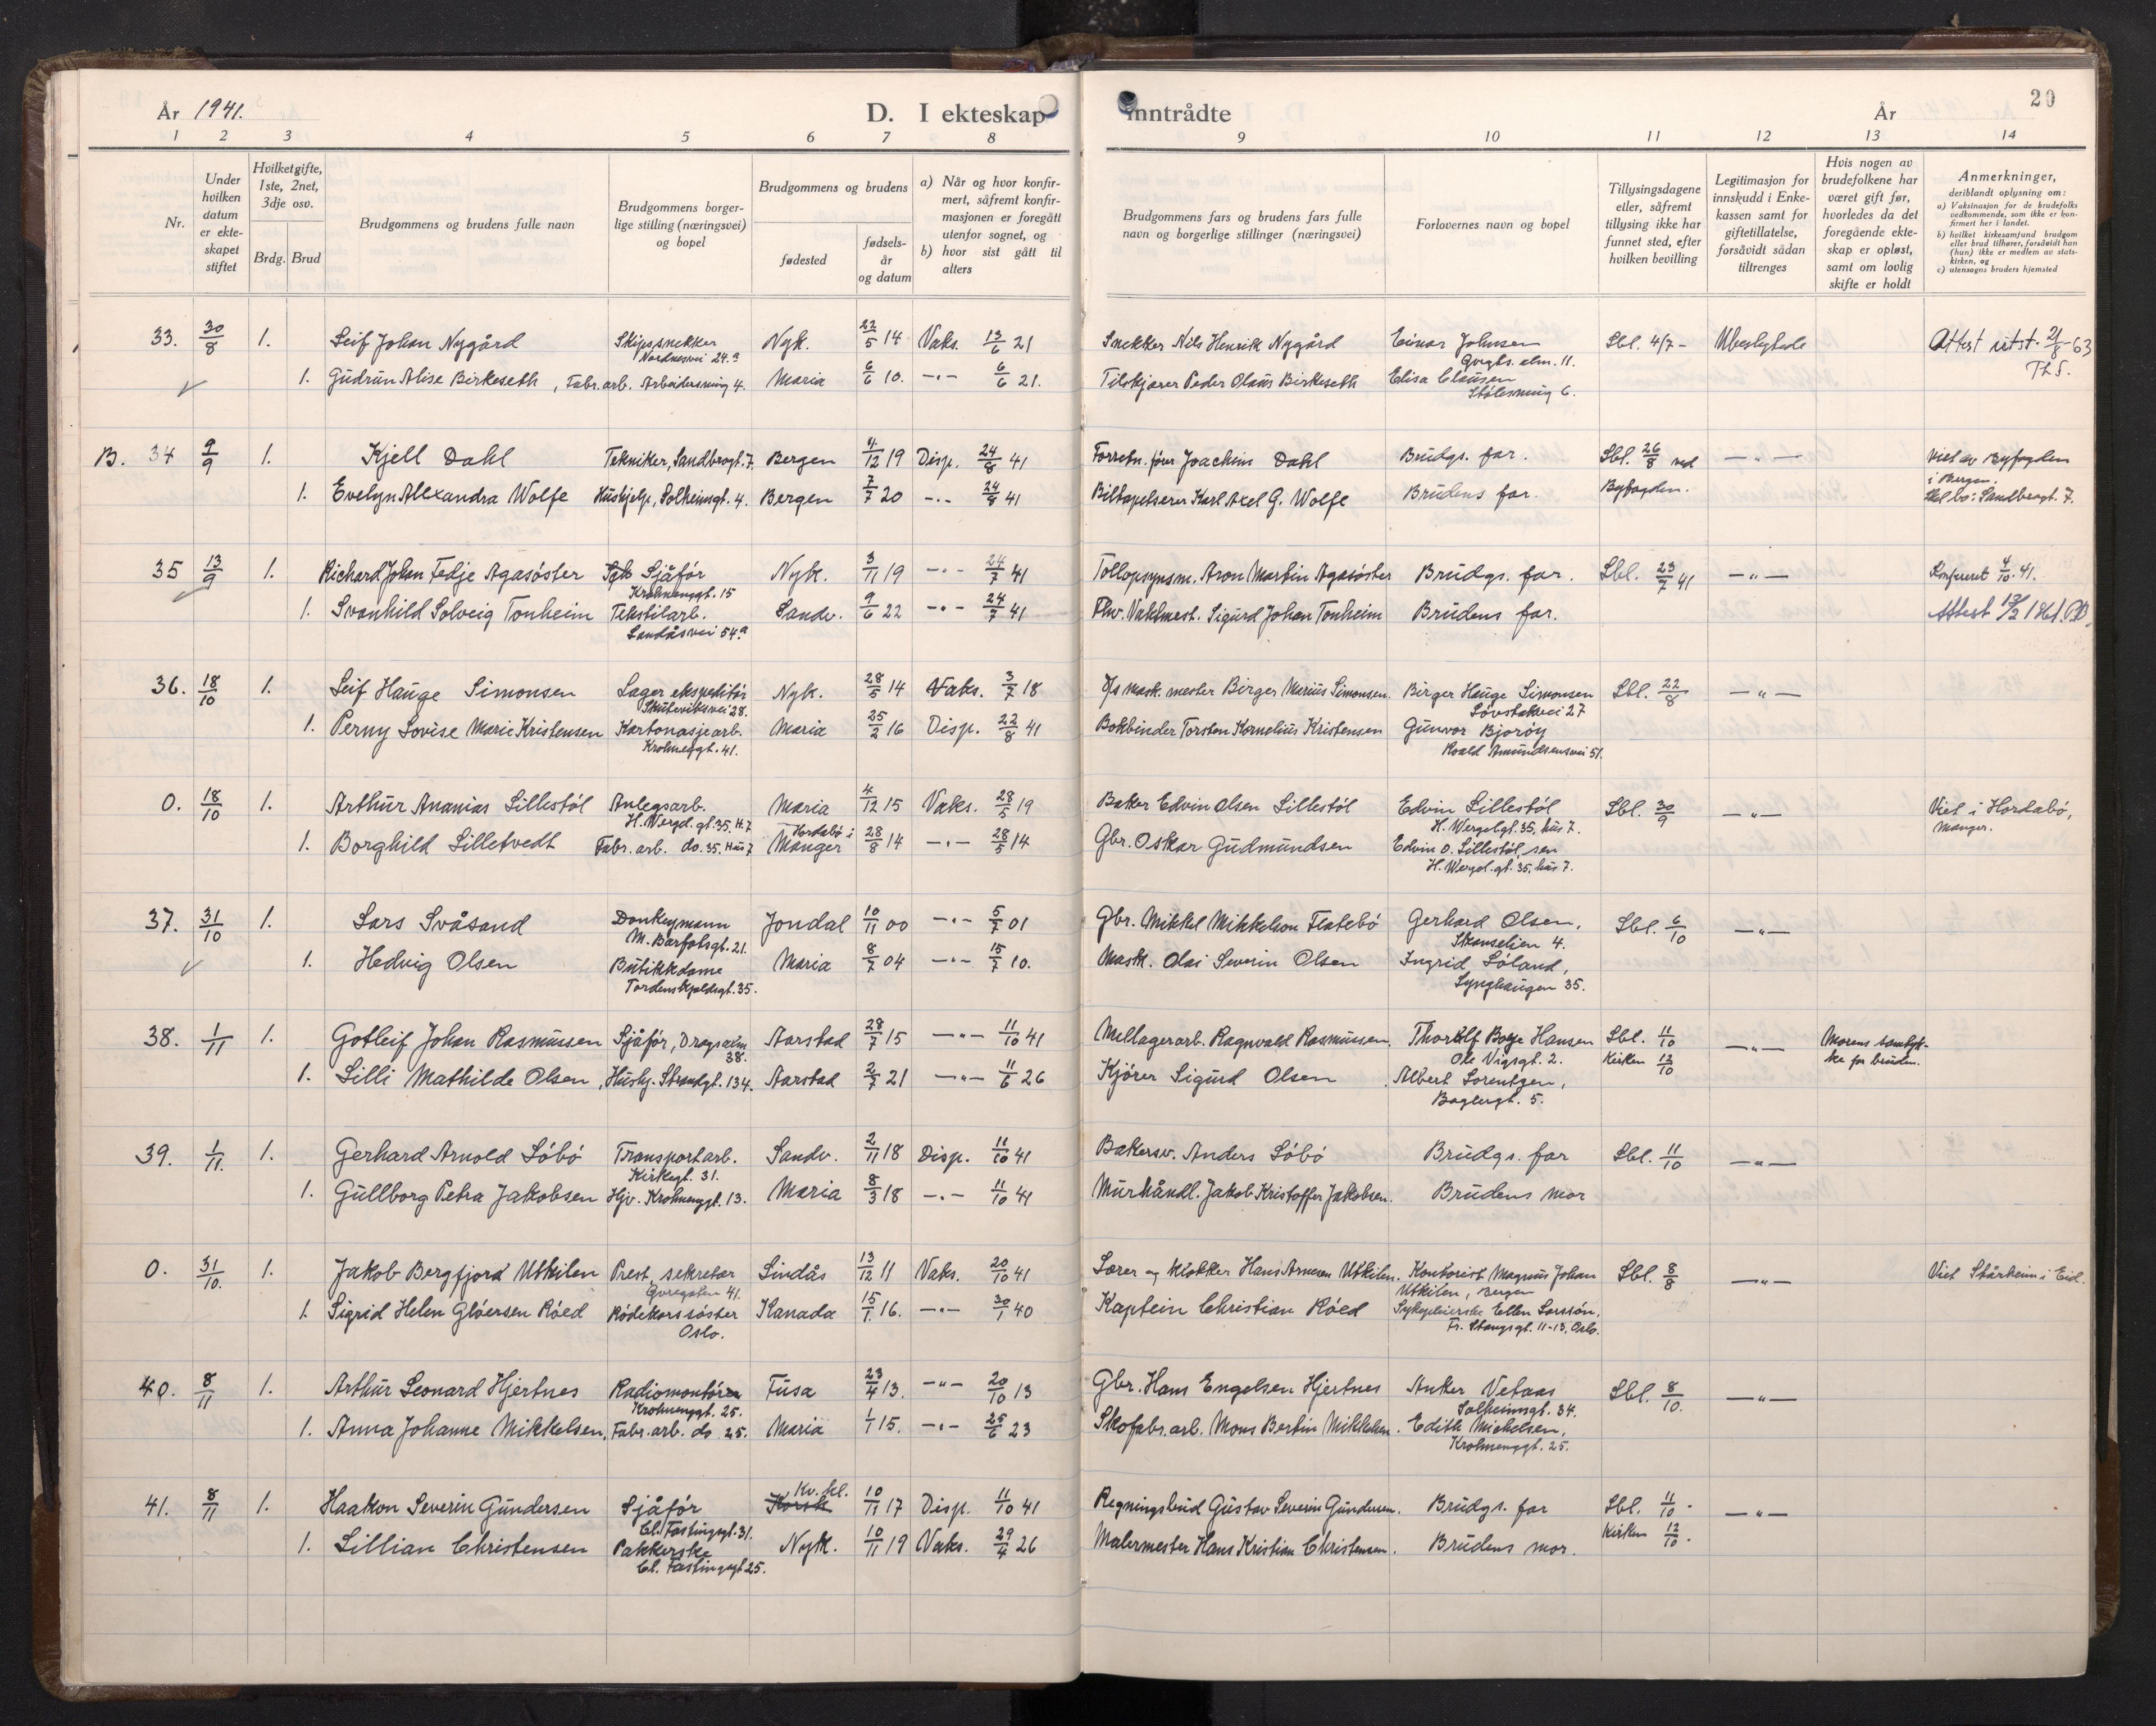 År 1941.
D. I ekteskap
inntrådte
År
20
1 2 3 4 5 6 7 8
9 10 11 12 13 14
Nr.
Under hvilken datum er ekteskapet stiftet
Hvilket gifte, 1ste, 2net, 3dje osv.
Brdg. Brud
Brudgommens og brudens fulle navn
Brudgommens borgerlige stilling (næringsvei) og bopel
Brudgommens og brudens
fødested
fødselsår og datum
a) Når og hvor konfirmert, såfremt konfirmasjonen er foregått utenfor sognet, og
b) hvor sist gått til alters
Brudgommens fars og brudens fars fulle navn og borgerlige stillinger (næringsvei)
Forlovernes navn og bopel
Tillysingsdagene eller, såfremt tillysing ikke har funnet sted, efter hvilken bevilling
Legitimasjon for innskudd i Enkekassen samt for giftetillatelse, forsåvidt sådan tiltrenges
Hvis nogen av brudefolkene har været gift før, hvorledes da det foregående ekteskap er opløst, samt om lovlig skifte er holdt
Anmerkninger,
deriblandt oplysning om:
a) Vaksinasjon for de brudefolks vedkommende, som ikke er konfirmert her i landet.
b) hvilket kirkesamfund brudgom eller brud tilhører, forsåvidt han (hun) ikke er medlem av statskirken, og
c) utensogns bruders hjemsted
33. 30/8 1. Leif Johan Nygård Skipssnekker Nyk. 22/5 14 Vaks. 13/6 21 Snekker Nils Henrik Nygård Einar Johnsen Lbl. 4/7 - Ubeslegtede Attest utst. 21/8-63
Nordnesvei 24.a 11. Th.S.
1. Gudrun Alise Birkeseth, Fabr.arb. Arbeidersmug 4. Maria 6/6 10. -"- 6/6 21. Tilskjærer Peder Olaus Birkeseth Elisa Clausen
Stølesmug 6.
B. 34 9/9 1. Kjell Dahl Tekniker, Sandbrogt. 7. Bergen 4/12 19 Disp. 24/8 41 Forretn. fører Joachim Dahl Brudgs. far. Lbl. 26/8 ved -"- Viet av Byfogden
1. Evelyn Alexandra Wolfe Hushjelp, Solheimsgt. 4. Bergen 7/7 20 -"- 24/8 41 Biltapetserer Karl Axel G. Wolfe Brudens far. Byfogden. i Bergen.
Skal bo: Sandbrogt. 7.
35 13/9 1. Richard Johan Fedje Agasøster Sjåfør Nyk. 3/11 19 -"- 24/7 41 Tollopsynsm. Aron Martin Agasøster Brudgs. far. Lbl. 23/7 41 -"- Konferert 4/10. 41.
Krohnenggt. 15
1. Svanhild Solveig Tonheim Tekstilarb. Sandv. 9/6 22 -"- 24/7 41 Fhv. Vaktmest. Sigurd Johan Tonheim Brudens far. Attest 13/2 1961.
Landåsvei 54.a
36. 18/10 1. Leif Hauge Simonsen Lager ekspeditør Nyk. 28/5 14 Vaks. 3/7 18 mask. mester Birger Marius Simonsen. Birger Hauge Simonsen Lbl. 22/8 -"-
Skuteviksvei 28. Løvstakvei 27
1. Perny Lovise Marie Kristensen Kartonasjearb. Maria 25/2 16 Disp. 22/8 41 Bokbinder Torsten Kornelius Kristensen Gunvor Bjorøy
Krohnenggt. 41. Roald Amundsensvei 51.
0. 18/10 1. Arthur Ananias Lillestøl Anlegsarb. Maria 4/12 15 Vaks. 28/5 19 Baker Edvin Olsen Lillestøl Edvin Lillestøl Lbl. 30/9 -"- Viet i Hordabø,
H. Wergel. gt. 35. H. 7 H. Wergelgt. 35, hus 7. Manger.
1. Borghild Lilletvedt Fabr. arb. do. 35. Hus 7 Hordabø i Manger 28/8 14 -"- 28/5 14 Gbr. Oskar Gudmundsen Edvin O. Lillestøl, sen
H. Wergel. gt. 35. hus 7.
37. 31/10 1. Lars Svåsand Donkeymann Jondal 10/11 00 -"- 5/7 01 Gbr. Mikkel Mikkelson Flatebø Gerhard Olsen, Lbl. 6/10 -"-
M. Barfotsgt. 21. Skanselien 4.
1. Hedvig Olsen Butikkdame Maria 8/7 04 -"- 15/7 10. Mask. Olai Severin Olsen Ingrid Søland,
Tordenskjoldsgt. 35. Lynghaugen 35.
38. 1/11 1. Gotleif Johan Rasmussen Sjåfør, Dragsalm. 38. Aarstad 28/7 15 -"- 11/10 41 Mellagerarb. Ragnvald Rasmussen. Thorolf Borge Hansen Lbl. 11/10 -"- Morens samtyk-
Ole Vigsgt. 2. Kirken 12/10 ke for bruden.
1. Lilli Mathilde Olsen, Hushj. Strandgt. 134. Aarstad 2/7 21 -"- 11/6 26 Kjører Sigurd Olsen Albert Lorentzen,
Baglergt. 5.
39. 1/11. 1. Gerhard Arnold Søbø Transportarb. Sandv. 2/11 18 Disp. 11/10 41 Bakersv. Anders Søbø Brudgs. far Lbl. 11/10 -"-
Kirkegt. 31.
1. Gullborg Petra Jakobsen Hjv. Krohnenggt. 13. Maria 8/3 18 -"- 11/10 41 Murhåndl. Jakob Kristoffer Jakobsen. Brudens mor
0. 31/10. 1. Jakob Bergfjord Utkilen Prest, sekretær Lindås 13/12 11 Vaks. 20/10 41 Lærer og klokker Hans Arnesen Utkilen. Kontorist Magnus Johan Lbl. 8/8 -"- Viet Stårheim i Eid.
Øvregaten 41. Utkilen, Bergen
1. Sigrid Helen Gløersen Røed Rødekorssøster Kanada 15/1 16. -"- 30/1 40 Kaptein Christian Røed Sykepleierske Ellen Larssøn,
Oslo. Fr. Stangsgt. 11-13, Oslo.
40. 8/11 1. Arthur Leonard Hjertnes Radiomontør Fusa 23/4 13. -"- 20/10 13 Gbr. Hans Engelsen Hjertnes Anker Vetaas Lbl. 8/10. -"-
Krohnenggt. 25. Solheimsgt. 34.
1. Anna Johanne Mikkelsen, Fabr. arb. do 25. Maria 1/1 15. -"- 25/6 23 Skofabr. arb. Mons Bertin Mikkelsen. Edith Mickelsen,
Krohnenggt. 25.
41. 8/11 1. Haakon Severin Gundersen Sjåfør Korsk Kv. kl. 10/11 17 Disp. 11/10 41 Regningsbud Gustav Severin Gundersen. Brudgs. far Lbl. 11/10. -"-
Cl. Fastingsgt. 31. Kirken 12/10.
1. Lillian Christensen Pakkerske Nyk. 10/11 19 Vaks. 29/4 26 Malermester Hans Kristian Christensen. Brudens mor.
Cl. Fastingsgt 25.